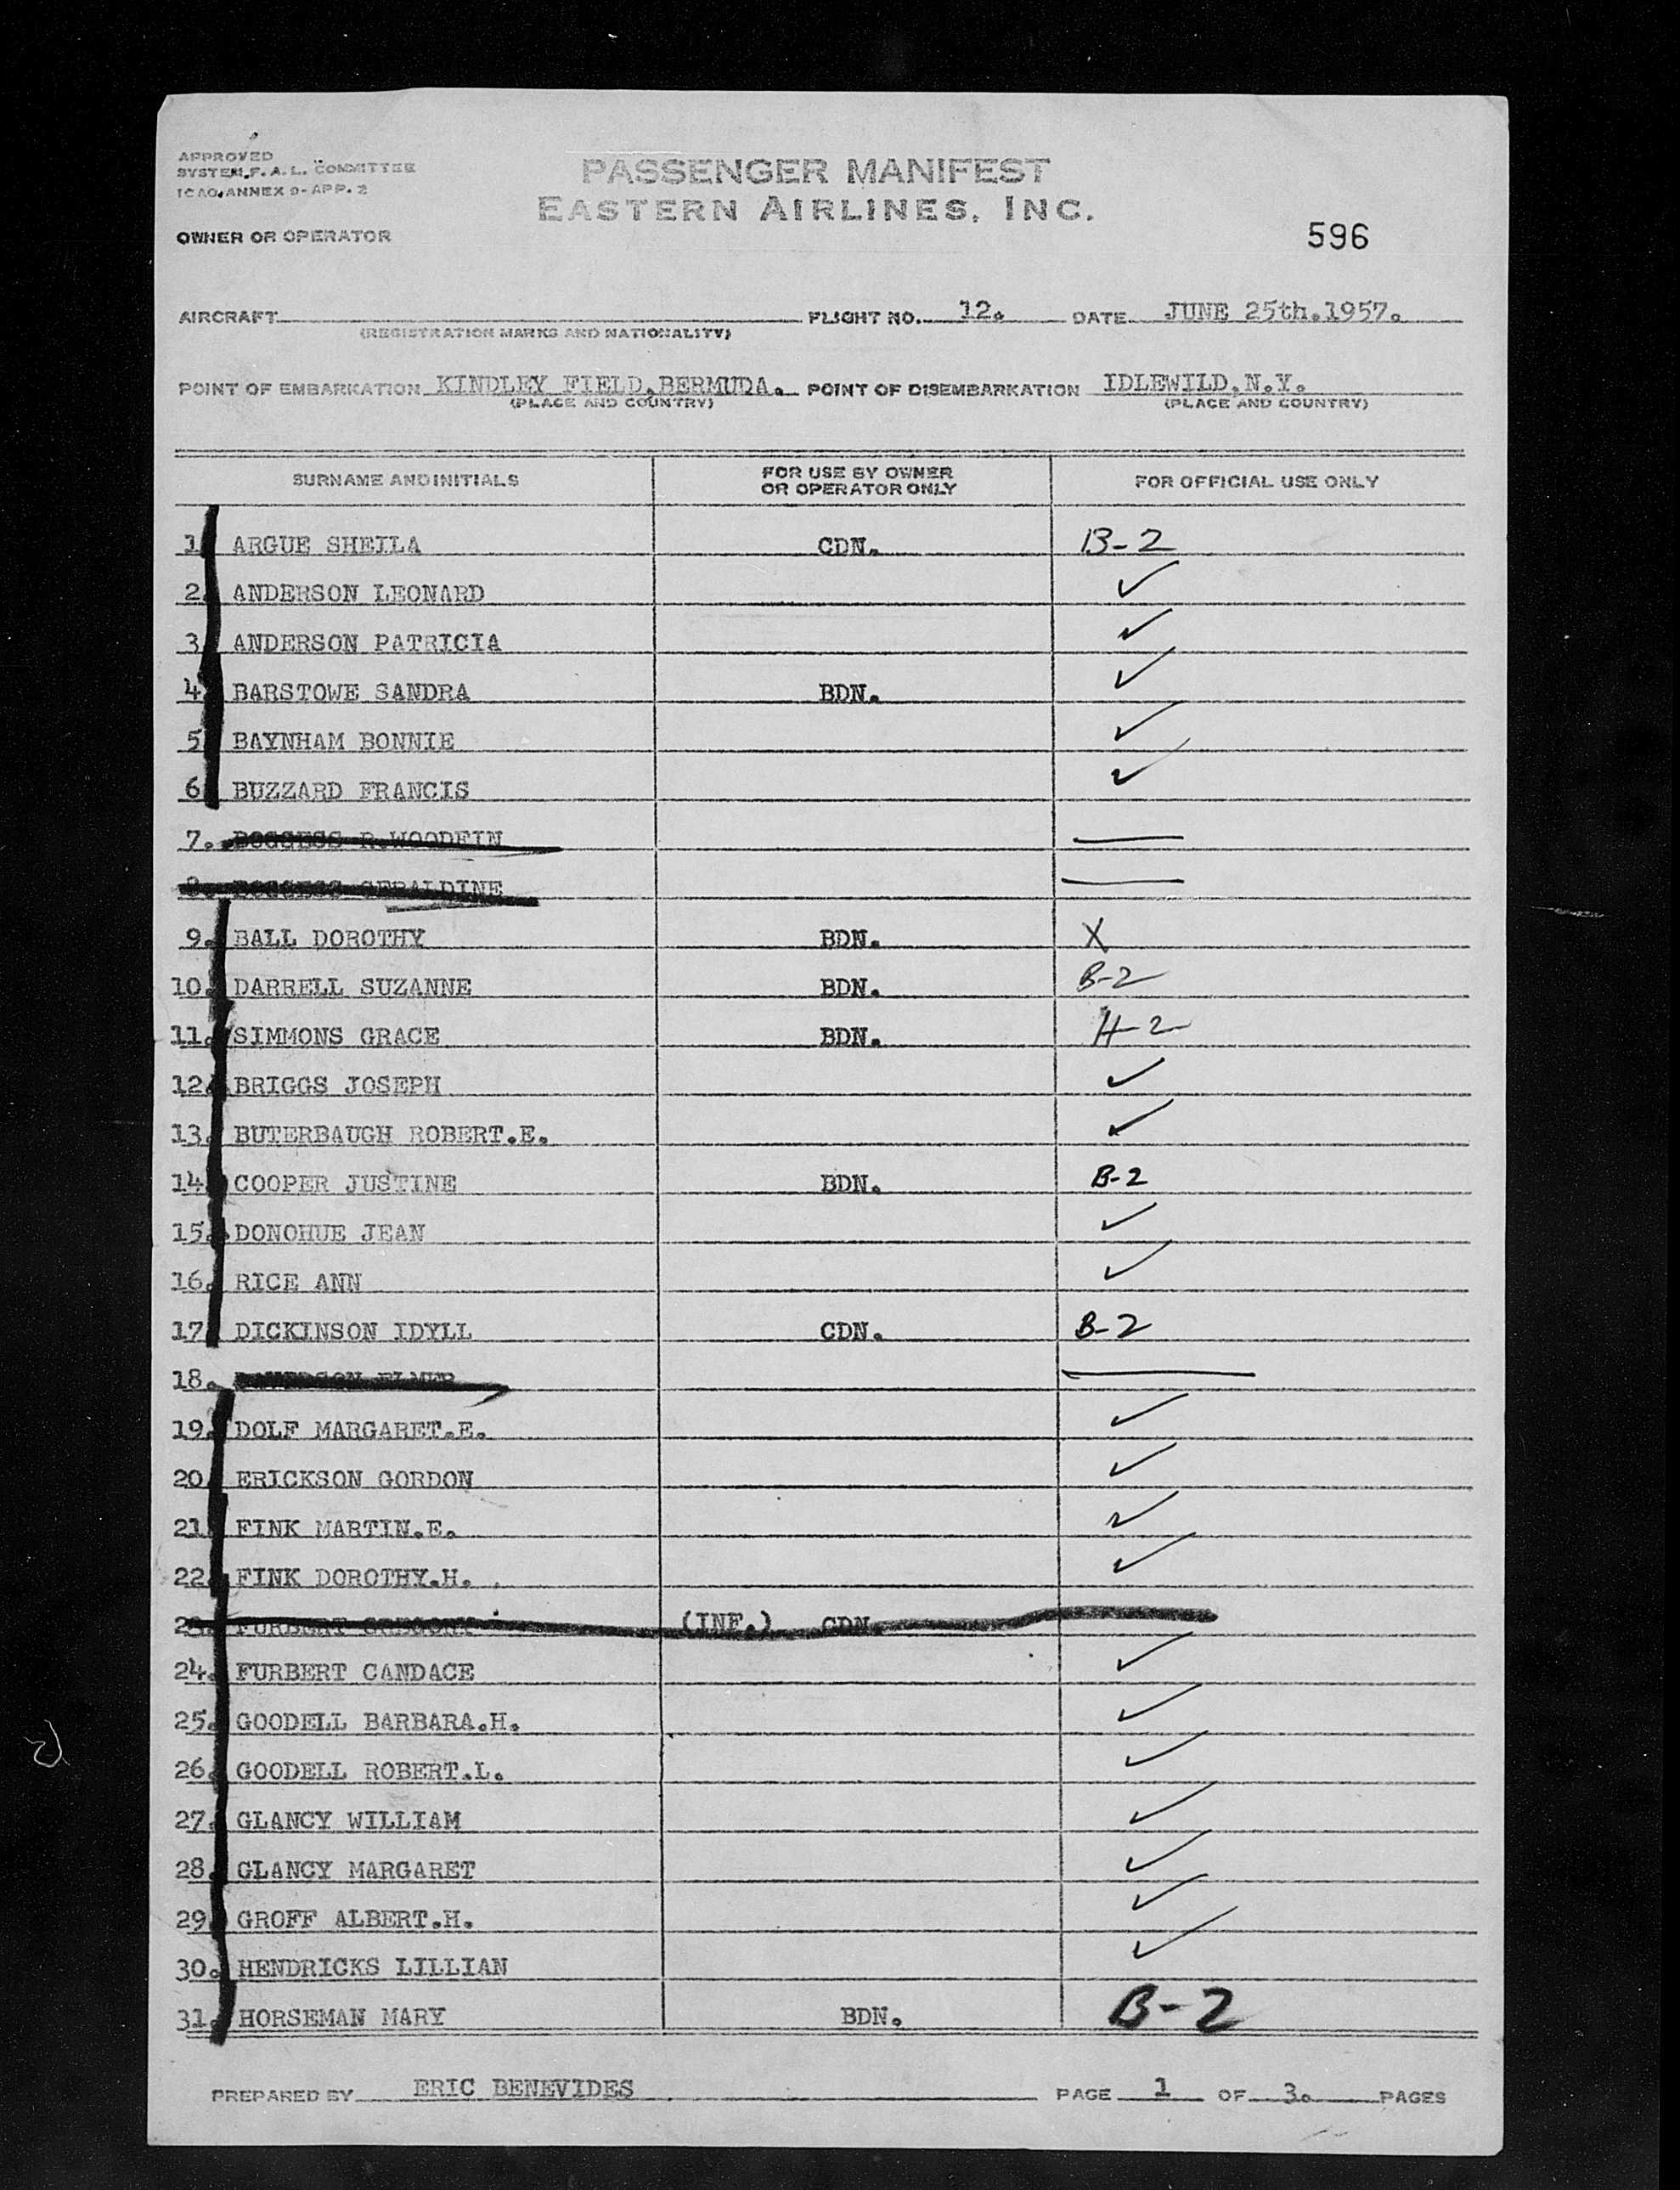 APPROVED
SYSTEM F. A. L. COMMITTEE
ICAO, ANNEX 9-APP. 2
OWNER OR OPERATOR
PASSENGER MANIFEST
EASTERN AIRLINES, INC.
596
AIRCRAFT FLIGHT NO. 12. DATE JUNE 25th.1957.
(REGISTRATION MARKS AND NATIONALITY)
POINT OF EMBARKATION KINDLEY FIELD,BERMUDA. POINT OF DISEMBARKATION IDLEWILD,N.Y.
(PLACE AND COUNTRY) (PLACE AND COUNTRY)
SURNAME AND INITIALS FOR USE BY OWNER OR OPERATOR ONLY FOR OFFICIAL USE ONLY
1. ARGUE SHEILA CDN. B-2
2. ANDERSON LEONARD ✓
3. ANDERSON PATRICIA ✓
4. BARSTOWE SANDRA BDN. ✓
5. BAYNHAM BONNIE ✓
6. BUZZARD FRANCIS ✓
7. BOGGESS R.WOODFIN
8. BOGGESS GERALDINE
9. BALL DOROTHY BDN. X
10. DARRELL SUZANNE BDN. B-2
11. SIMMONS GRACE BDN. H-2
12. BRIGGS JOSEPH ✓
13. BUTERBAUGH ROBERT.E. ✓
14. COOPER JUSTINE BDN. B-2
15. DONOHUE JEAN ✓
16. RICE ANN ✓
17. DICKINSON IDYLL CDN. B-2
18. ELMER
19. DOLF MARGARET.E. ✓
20. ERICKSON GORDON ✓
21. FINK MARTIN.E. ✓
22. FINK DOROTHY.H. ✓
23. FURBERT GREGORY (INF.) CDN.
24. FURBERT CANDACE ✓
25. GOODELL BARBARA.H. ✓
26. GOODELL ROBERT.L. ✓
27. GLANCY WILLIAM ✓
28. GLANCY MARGARET ✓
29. GROFF ALBERT.H. ✓
30. HENDRICKS LILLIAN ✓
31. HORSEMAN MARY BDN. B-2
PREPARED BY ERIC BENEVIDES PAGE 1 OF 3. PAGES